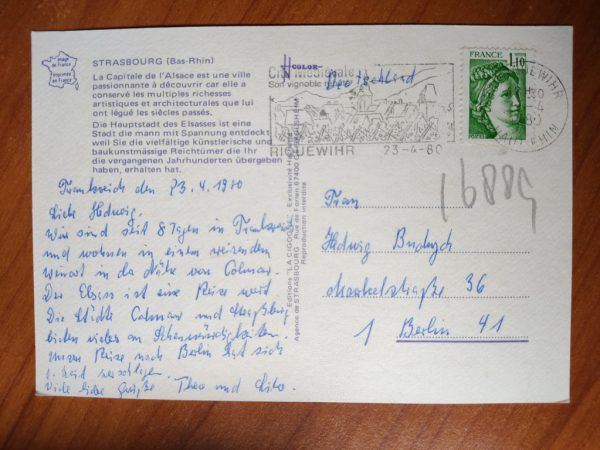 Image
de France
Imprimée
en France
STRASBOURG (Bas-Rhin)
La Capitale de l'Alsace est une ville
passionnante à découvrir car elle a
conservé les multiples richesses
artistiques et architecturales que lui
ont légué les siècles passés.
Die Hauptstadt des Elsasses ist eine
Stadt die mann mit Spannung entdeckt
weil Sie die vielfältige künstlerische und
baukunstmässige Reichtümer die Ihr
die vergangenen Jahrhunderten übergeben
haben, erhalten hat.
Frankreich den 23.4.1980
Liebe Hedwig.
Wir sind seit 8 Tagen in
und wohnen in einem reizenden
in da Nähe von Colmar.
Der Elsass ist eine Reise wert
Die Städte Colmar und
bieten vieles an Sehenswürdigkeiten.
Unsere Reise nach Berlin hat sich
Viele liebe Grüße Theo und
Editions "LA CIGOGNE"
Exclusivité
Agence de STRASBOURG - Rue de 67400
Reproduction interdite
COLOR
Cité Médiévale
Son vignoble
Deutschland
RIQUEWIHR
23-4-80
FRANCE
1,10
RIQUEWIHR
RHIN
16885
Frau
Hedwig
36
1 Berlin 41